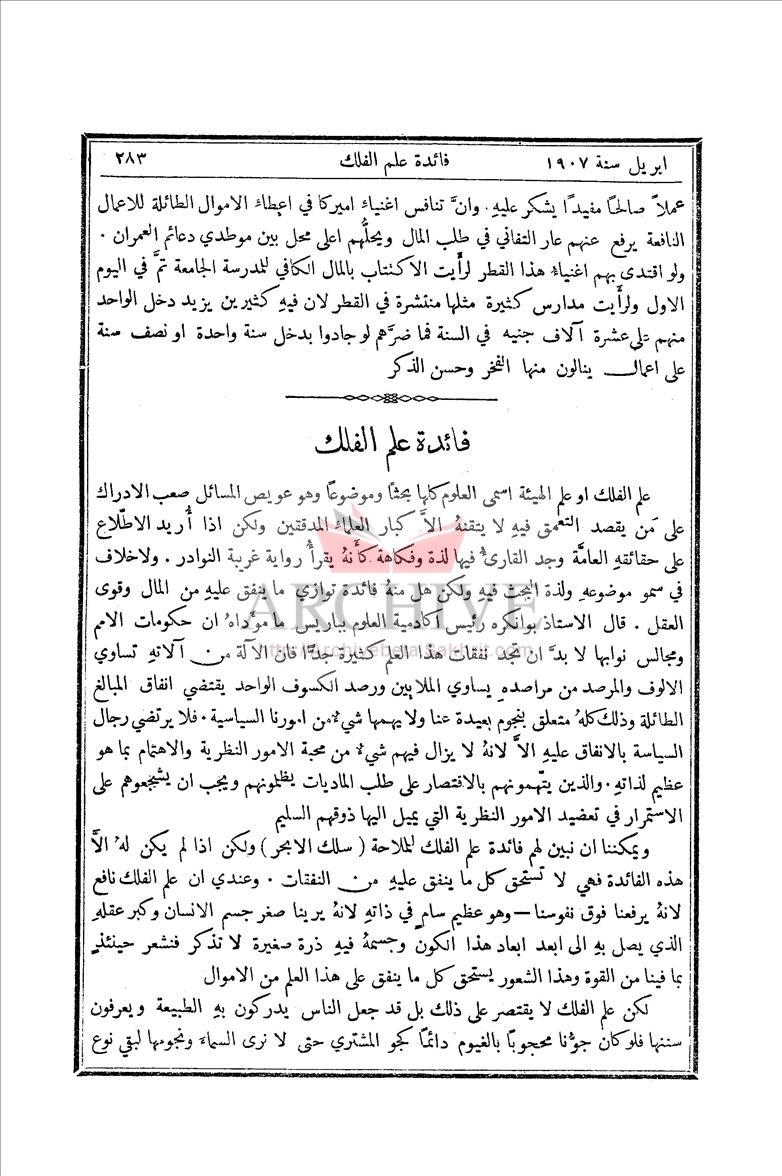 ابريل سنة ١٩٠٧ فائدة علم الفلك ٢٨٣
عملاً صالحًا مفيدًا يشكر عليهِ. وانَّ تنافس اغنياءِ اميركا في اعطاء الاموال الطائلة للاعمال
النافعة يرفع عنهم عار التفاني في طلب المال ويحلُّهم اعلى محل بين موطدي دعائم العمران .
ولو اقتدى بهم اغنياءُ هذا القطر لرأَيت الاكتتاب بالمال الكافي للمدرسة الجامعة تمَّ في اليوم
الاول ولرأَيت مدارس كثيرة مثلها منتشرة في القطر لان فيهِ كثيرين يزيد دخل الواحد
منهم على عشرة آلاف جنيه في السنة فما ضرَّهم لو جادوا بدخل سنة واحدة او نصف سنة
على اعمال ينالون منها الفخر وحسن الذكر
فائدة علم الفلك
علم الفلك او علم الهيئة اسمى العلوم كلها بحثًا وموضوعًا وهو عويص المسائل صعب الادراك
على مَن يقصد التعمق فيهِ لا يتقنهُ الاَّ كبار العلماء المدققين ولكن اذا أُريد الاطّلاع
على حقائقهِ العامَّة وجد القارئُ فيها لذة وفكاهة كأَنهُ يقرأُ رواية غريبة النوادر . ولاخلاف
في سمو موضوعهِ ولذة البحث فيهِ ولكن هل منهُ فائدة توازي ما ينفق عليهِ من المال وقوى
العقل . قال الاستاذ بوانكره رئيس اكادمية العلوم بباريس ما موَّداهُ ان حكومات الامم
ومجالس نوابها لا بدَّ ان تجد نفقات هذا العلم كبيرة جدًّا فان الآلة من آلاتهِ تساوي
الالوف والمرصد من مراصدهِ يساوي الملايين ورصد الكسوف الواحد يقتضي انفاق المبالغ
الطائلة وذلك كلهُ متعلق بنجوم بعيدة عنا ولا يهمها شيءٌ من امورنا السياسية . فلا يرتضي رجال
السياسة بالانفاق عليهِ الاَّ لانهُ لا يزال فيهم شيءٌ من محبة الامور النظرية والاهتمام بما هو
عظيم لذاتهِ . والذين يتَّهمونهم بالاقتصار على طلب الماديات يظلمونهم ويجب ان يشجعوهم على
الاستمرار في تعضيد الامور النظرية التي يميل اليها ذوقهم السليم
ويمكننا ان نبين لهم فائدة علم الفلك للملاحة ( سلك الابحر ) ولكن اذا لم يكن لهُ الاَّ
هذه الفائدة فهي لا تستحق كل ما ينفق عليهِ من النفقات . وعندي ان علم الفلك نافع
لانهُ يرفعنا فوق نفوسنا – وهو عظيم سامٍ في ذاتهِ لانهُ يرينا صغر جسم الانسان وكبر عقلهِ
الذي يصل بهِ الى ابعد ابعاد هذا الكون وجسمهُ فيهِ ذرة صغيرة لا تذكر فنشعر حينئذٍ
بما فينا من القوة وهذا الشعور يستحق كل ما ينفق على هذا العلم من الاموال
لكن علم الفلك لا يقتصر على ذلك بل قد جعل الناس يدركون بهِ الطبيعة ويعرفون
سننها فلو كان جوُّنا محجوبًا بالغيوم دائمًا كجو المشتري حتى لا نرى السماءَ ونجومها لبقي نوع
ARCHIVE